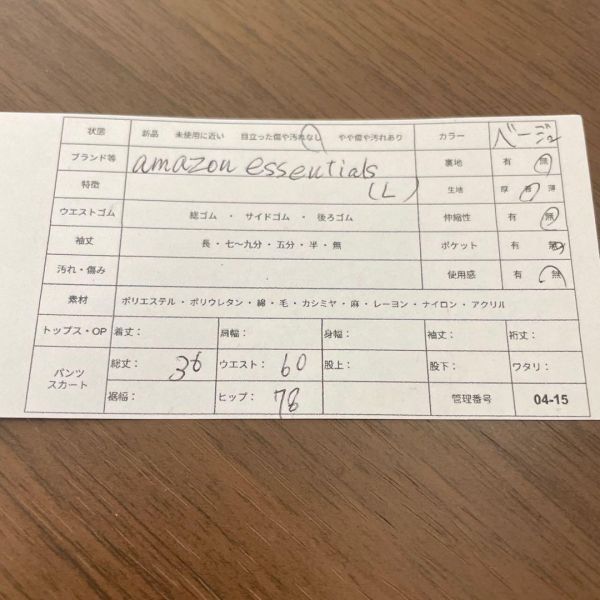 状態 新品 未使用に近い 目立った傷や汚れなし やや傷や汚れあり カラー ベージュ
ブランド等 amazon essentials 裏地 有 無
特徴 (L) 生地 厚 普 薄
ウエストゴム 総ゴム ・ サイドゴム ・ 後ろゴム 伸縮性 有 無
袖丈 長・七〜九分・五分・半・無 ポケット 有 無
汚れ・傷み 使用感 有 無
素材 ポリエステル・ポリウレタン・綿・毛・カシミヤ・麻・レーヨン・ナイロン・アクリル
トップス・OP 着丈: 肩幅: 身幅: 袖丈: 裄丈:
パンツ スカート 総丈: 36 ウエスト: 60 股上: 股下: ワタリ:
裾幅: ヒップ: 78 管理番号 04-15